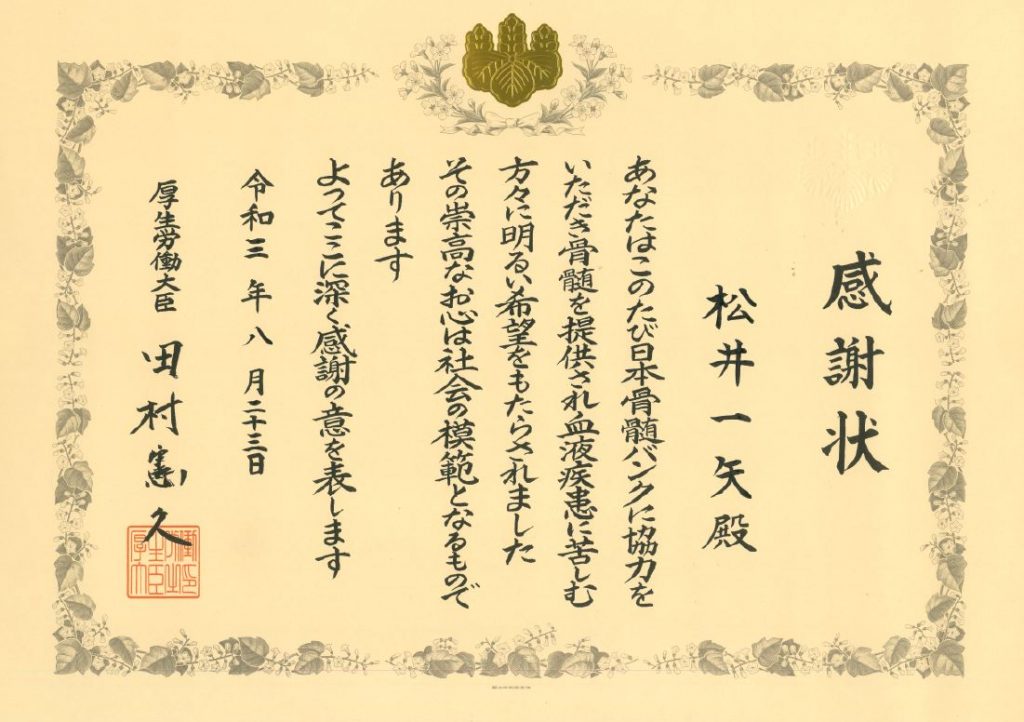 感謝状
松井一矢殿
あなたはこのたび日本骨髄バンクに協力を
いただき骨髄を提供され血液疾患に苦しむ
方々に明るい希望をもたらされました
その崇高なお心は社会の模範となるもので
あります
よってここに深く感謝の意を表します
令和三年八月二十三日
厚生労働大臣 田村憲久